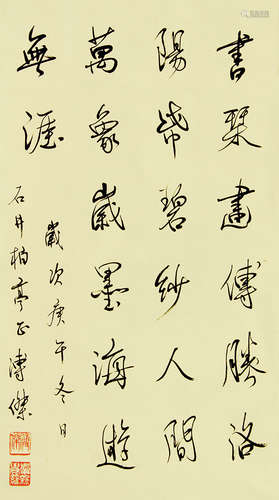 書琹畫傳勝洛
陽帋碧紗人間
萬象歲墨海遊
無涯
歲次庚午冬日
石井柏亭正 溥傑